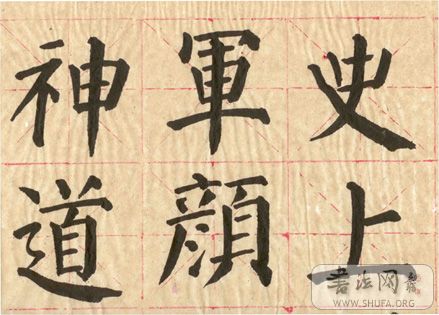 史上
軍顏
神道
書法网
WWW.SHUFA.ORG